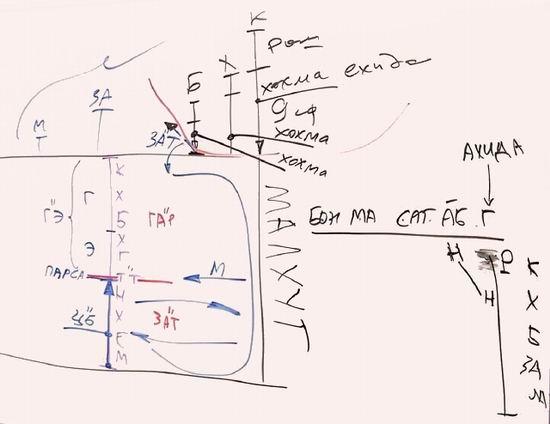 К
РОШ
ЗА
М
Б
Х
ХОХМА ЕХИДА
ГУФ
ХОХМА
ХОХМА
ЗАТ
АХИДА
БОН МА САГ АБ Г
МАЛХУТ
Г"Э
Г
Э
К
Х
Б
Х
Г
Т"Т
Н
Х
Е
М
ГА"Р
ПАРСА
М
ЗА"Т
Н
Н
Р
К
Х
Б
ЗА
М